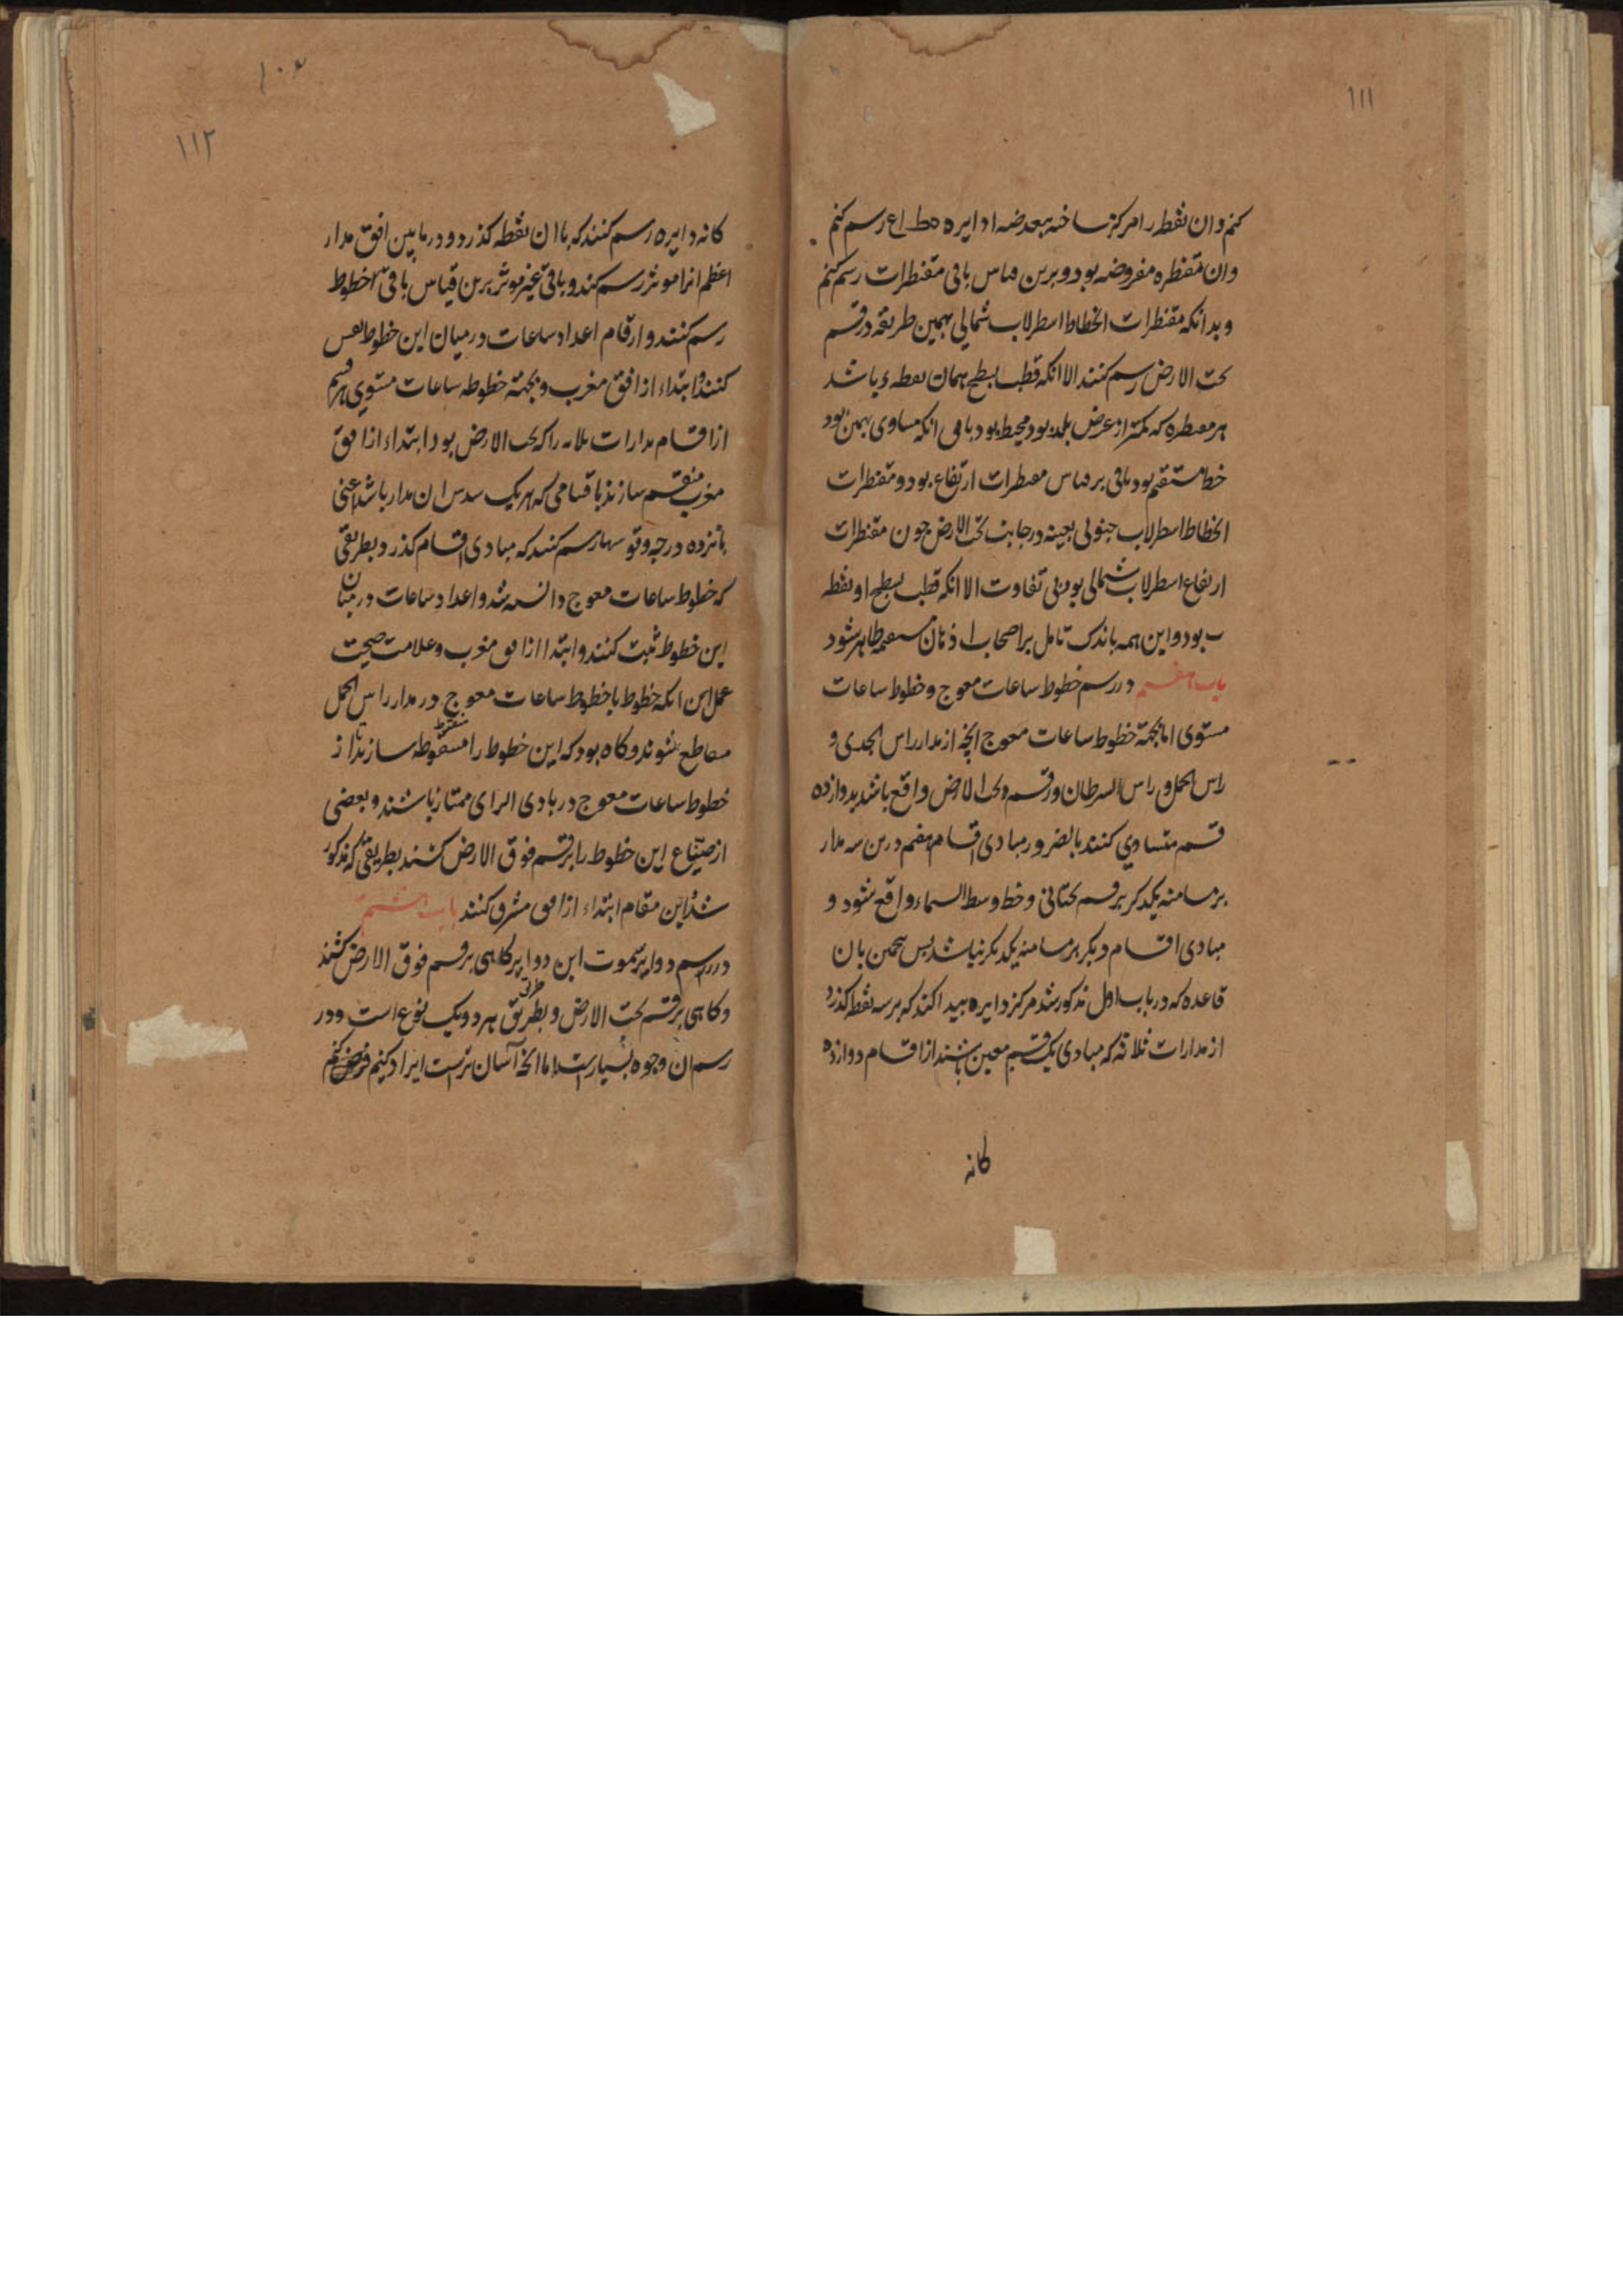 ۱۱۱
کنم وان نقطه را مرکز ساخته ببعد ضه ا دایره ه ط ا ع رسم کنم
وان مقنطره مفروضه بود و برین قیاس باقی مقنطرات رسم کنم
و بدانکه مقنطرات انحطاط اسطرلاب شمالی بهمین طریقه در قسم
تحت الارض رسم کنند الا انکه قطب سطح همان نقطه ء باشد
هر مقنطره که کمتر از عرض بلد بود محیط بود باقی انکه مساوی بهمن بود
خط مستقیم بود باقی بر قیاس مقنطرات ارتفاع بود و مقنطرات
انحطاط اسطرلاب جنوبی بعینه در جانب تحت الارض چون مقنطرات
ارتفاع اسطرلاب شمالی بود بی تفاوت الا انکه قطب سطح او نقطه
ب بود و این همه باندک تامل بر اصحاب اذهان مستقیمه ظاهر شود
باب هفتم در رسم خطوط ساعات معوج و خطوط ساعات
مستوی اما بجهة خطوط ساعات معوج انچه از مدار راس الجدی و
راس الحمل و راس السرطان در قسم تحت الارض واقع باشد بدوازده
قسم متساوی کنند بالضرور مبادی اقسام هفتم درین سه مدار
بر مسامته یکدگر بر قسم تحتانی و خط وسط السماء واقع شود و
مبادی اقسام دیگر بر مسامته یکدیگر نباشد پس همچنین بان
قاعده که در باب اول مذکور شد مرکز دایره پیدا کند که بر سه نقطه گذرد
از مدارات ثلاثه که مبادی یک قسم معین باشند از اقسام دوازده
کانه
۱۱۲
کانه دایره رسم کنند که باان نقطه گذرد و در مابین افق مدار
اعظم انرا موثر رسم کند و باقی غیر موثر برین قیاس باقی خطوط
رسم کنند و ارقام اعداد ساعات در میان این خطوط نقش
کنند و ابتداء از افق مغرب و بجهة خطوط ساعات مستوی هر قسم
از اقسام مدارات ثلاثه را که تحت الارض بود ابتداء از افق
مغرب منقسم سازند باقسامی که هر یک سدس ان مدار باشد اعنی
پانزده درجه و قوسها رسم کنند که مبادی اقسام گذرد بطریقی
که خطوط ساعات معوج دانسته شد و اعداد ساعات در میان
این خطوط ثبت کنند و ابتدا از افق مغرب و علامت صحت
عمل این انکه خطوط با خطوط ساعات معوج در مدار راس الحمل
متقاطع شوند و گاه بود که این خطوط را منقوطه سازند تا از
خطوط ساعات معوج در بادی الرای ممتاز باشند و بعضی
از صناع این خطوط را بر قسم فوق الارض کشند بطریقی که مذکور
شد این مقام ابتداء از افق مشرق کنند باب هشتم
در رسم دوایر سموت این دوایر گاهی بر قسم فوق الارض کشند
و گاهی بر قسم تحت الارض و بطریق هر دو یک نوع است و در
رسم ان وجوه بسیارست اما انچه آسان ترست ایراد کنیم فرض کنم